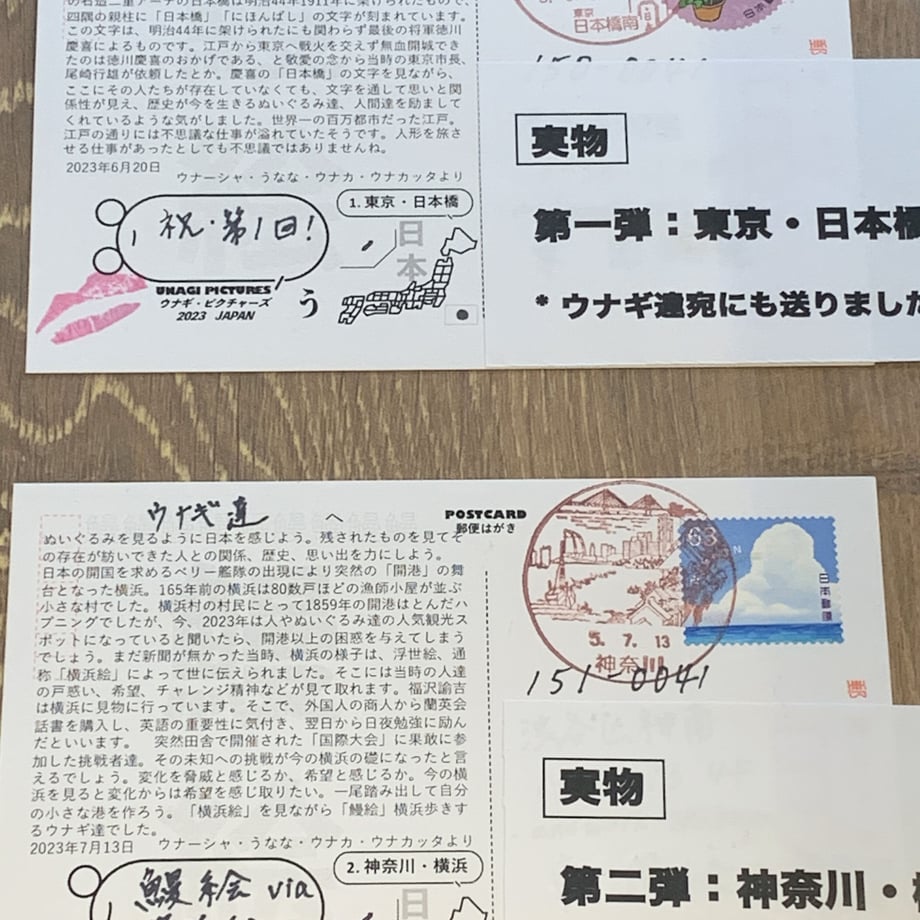 の石造二重アーチの日本橋は明治44年1911年に架けられたもので、
四隅の親柱に「日本橋」「にほんばし」の文字が刻まれています。
この文字は、明治44年に架けられたにも関わらず最後の将軍徳川
慶喜によるものです。江戸から東京へ戦火を交えず無血開城でき
たのは徳川慶喜のおかげである、と敬愛の念から当時の東京市長、
尾崎行雄が依頼したとか。慶喜の「日本橋」の文字を見ながら、
ここにその人たちが存在していなくても、文字を通して思いと関
係性が見え、歴史が今を生きるぬいぐるみ達、人間達を励まして
くれているような気がしました。世界一の百万都市だった江戸。
江戸の通りには不思議な仕事が溢れていたそうです。人形を旅さ
せる仕事があったとしても不思議ではありませんね。
2023年6月20日
ウナーシャ・うなな・ウナカ・ウナカッタより
祝・第1回!
1.東京・日本橋
日本
UNAGI PICTURES
ウナギ・ピクチャーズ
2023 JAPAN
う
東京
日本橋南
実物
第一弾：東京・日本橋
* ウナギ達宛にも送りました
ウナギ達 へ
POSTCARD
郵便はがき
ぬいぐるみを見るように日本を感じよう。残されたものを見てそ
の存在が紡いできた人との関係、歴史、思い出を力にしよう。
日本の開国を求めるペリー艦隊の出現により突然の「開港」の舞
台となった横浜。165年前の横浜は80数戸ほどの漁師小屋が並ぶ
小さな村でした。横浜村の村民にとって1859年の開港はとんだハ
プニングでしたが、今、2023年は人やぬいぐるみ達の人気観光ス
ポットになっていると聞いたら、開港以上の困惑を与えてしまう
でしょう。まだ新聞が無かった当時、横浜の様子は、浮世絵、通
称「横浜絵」によって世に伝えられました。そこには当時の人達
の戸惑い、希望、チャレンジ精神などが見て取れます。福沢諭吉
は横浜に見物に行っています。そこで、外国人の商人から蘭英会
話書を購入し、英語の重要性に気付き、翌日から日夜勉強に励ん
だといいます。 突然田舎で開催された「国際大会」に果敢に参
加した挑戦者達。その未知への挑戦が今の横浜の礎になったと言
えるでしょう。変化を脅威と感じるか、希望と感じるか。今の横
浜を見ると変化からは希望を感じ取りたい。一尾踏み出して自分
の小さな港を作ろう。「横浜絵」を見ながら「鰻絵」横浜歩きす
るウナギ達でした。
2023年7月13日 ウナーシャ・うなな・ウナカ・ウナカッタより
鰻絵 via
2.神奈川・横浜
日
63
日本郵便
5. 7. 13
神奈川
151-0041
実物
第二弾：神奈川・